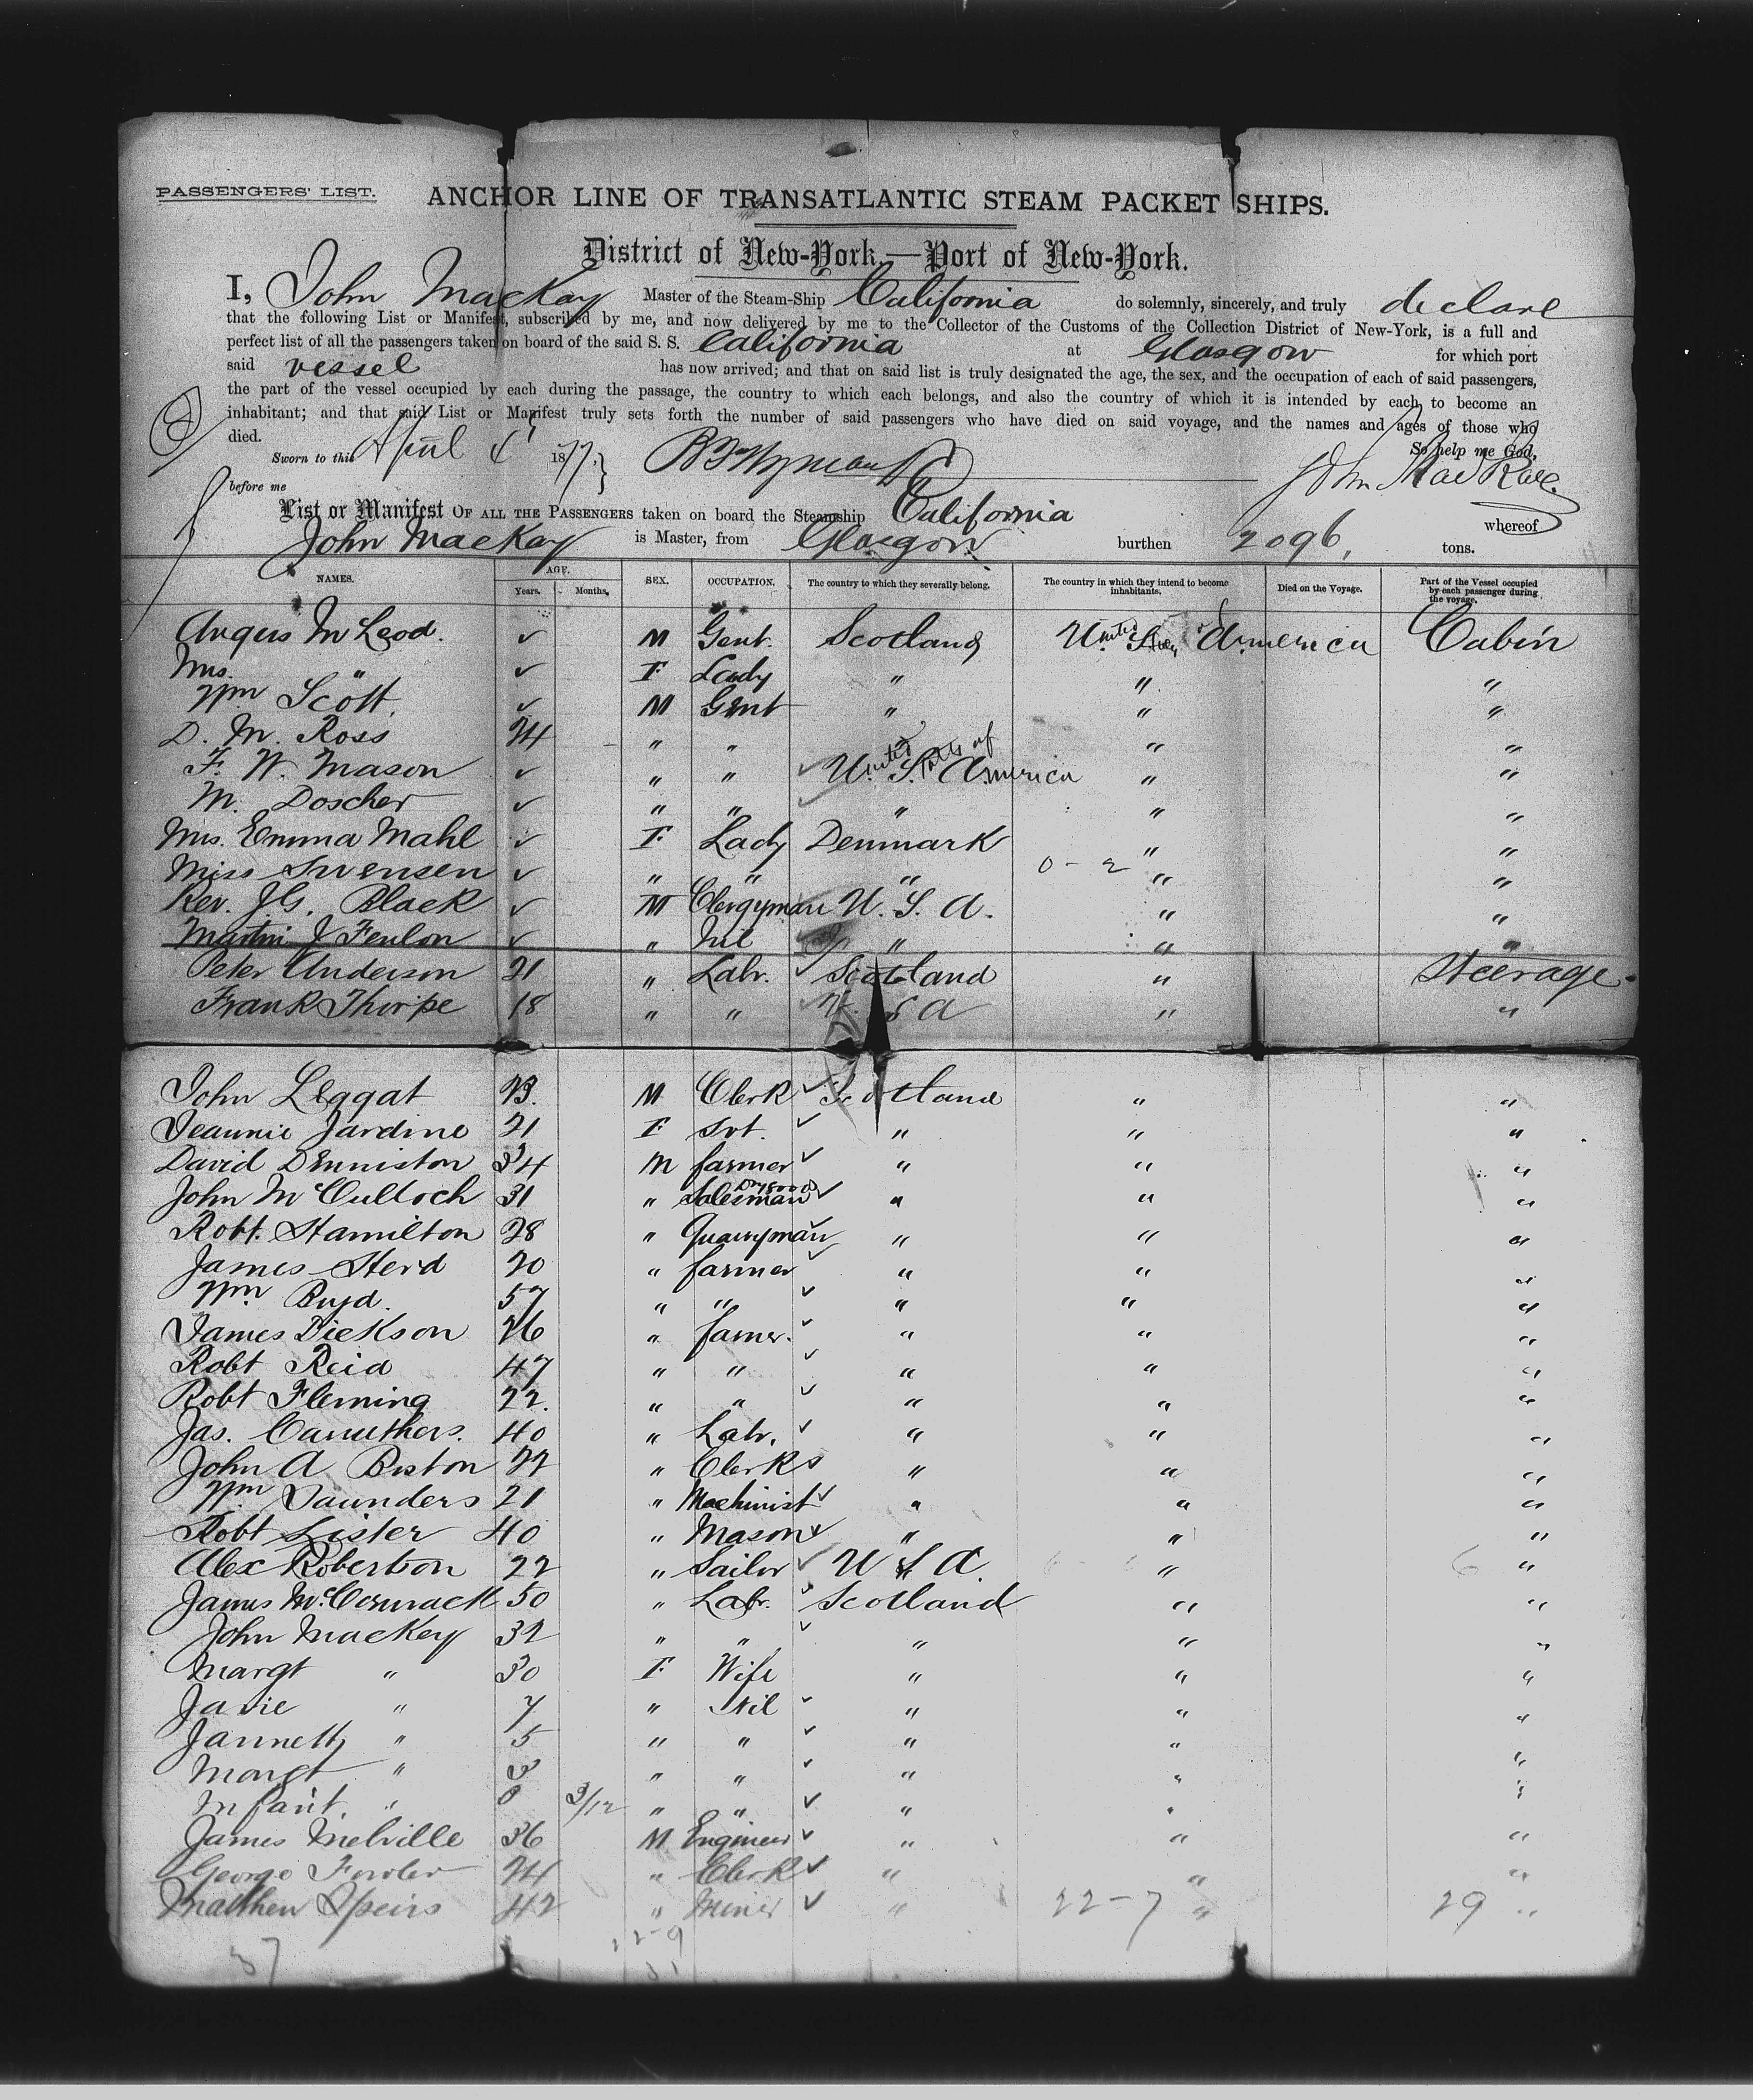 PASSENGERS' LIST.
ANCHOR LINE OF TRANSATLANTIC STEAM PACKET SHIPS.
District of New-York,—Port of New-York.
I, John MacKay Master of the Steam-Ship California do solemnly, sincerely, and truly declare
that the following List or Manifest, subscribed by me, and now delivered by me to the Collector of the Customs of the Collection District of New-York, is a full and
perfect list of all the passengers taken on board of the said S. S. California at Glasgow for which port
said vessel has now arrived; and that on said list is truly designated the age, the sex, and the occupation of each of said passengers,
the part of the vessel occupied by each during the passage, the country to which each belongs, and also the country of which it is intended by each to become an
inhabitant; and that said List or Manifest truly sets forth the number of said passengers who have died on said voyage, and the names and ages of those who
died. So help me God,
Sworn to this April 4 1877,
before me
List or Manifest OF ALL THE PASSENGERS taken on board the Steamship California whereof
John MacKay is Master, from Glasgow burthen 2096, tons.
NAMES. AGE. Years. Months, SEX. OCCUPATION. The country to which they severally belong. The country in which they intend to become inhabitants. Died on the Voyage. Part of the Vessel occupied by each passenger during the voyage.
Angus McLeod. ✓ M Gent. Scotland United States America Cabin
Mrs. " ✓ F Lady " " "
Wm Scott. ✓ M Gent " " "
D. M. Ross 24 " " " "
F. W. Mason ✓ " " ✓ United States of America " "
M. Doscher ✓ " " ✓ " " "
Mrs. Emma Mahl ✓ F Lady Denmark " "
Miss Swensen ✓ " " " 0-2 " "
Rev. J.G. Black ✓ M Clergyman U. S. A. " "
Martin J Fenlon ✓ " Nil " " "
Peter Anderson 21 " Labr. ✓ Scotland " Steerage.
Frank Thorpe 18 " " ✓ S A " "
John Leggat 23. M Clerk ✓ Scotland " "
Jeannie Jardine 21 F Svt. ✓ " " "
David Denniston 34 M farmer ✓ " " "
John McCulloch 31 " Dry Goods Salesman ✓ " " "
Robt. Hamilton 28 " Quarryman ✓ " " "
James Herd 20 " farmer ✓ " " "
Wm Boyd. 57 " " ✓ " " "
James Dickson 26 " famer. ✓ " " "
Robt Reid 47 " " ✓ " " "
Robt Fleming 22. " " ✓ " " "
Jas. Carruthers. 40 " Labr. ✓ " " "
John A Biston 22 " Clerk ✓ " " "
Wm Saunders 21 " Machinist ✓ " " "
Robt Lister 40 " Mason ✓ " " "
Alex Robertson 22 " Sailor ✓ U S A. " 6 "
James McCormack 50 " Labr. ✓ Scotland " "
John Mackey 32 " " ✓ " " "
Margt " 30 F Wife " " "
Janie " 7 " Nil ✓ " " "
Jannett " 5 " " ✓ " " "
Margt " 3 " " ✓ " " "
Infant. " 0 3/12 " " ✓ " " "
James Melville 36 M Engineer ✓ " " "
George Fowler 24 " Clerk ✓ " " "
Matthew Speirs 42 " Miner ✓ " 22-7 " 29 "
37 22-9